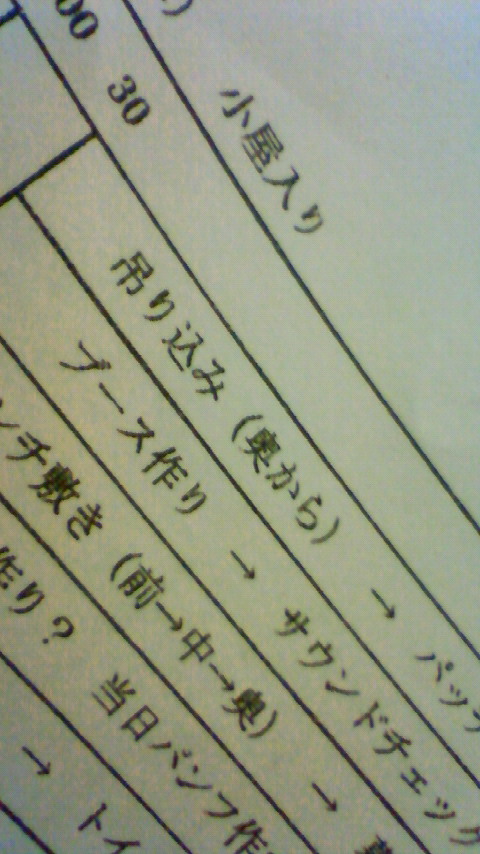 00
30
小屋入り
吊り込み（奥から） → パッ
ブース作り → サウンドチェック
ンチ敷き（前→中→奥） →
作り？ 当日パンフ作
→ トイ